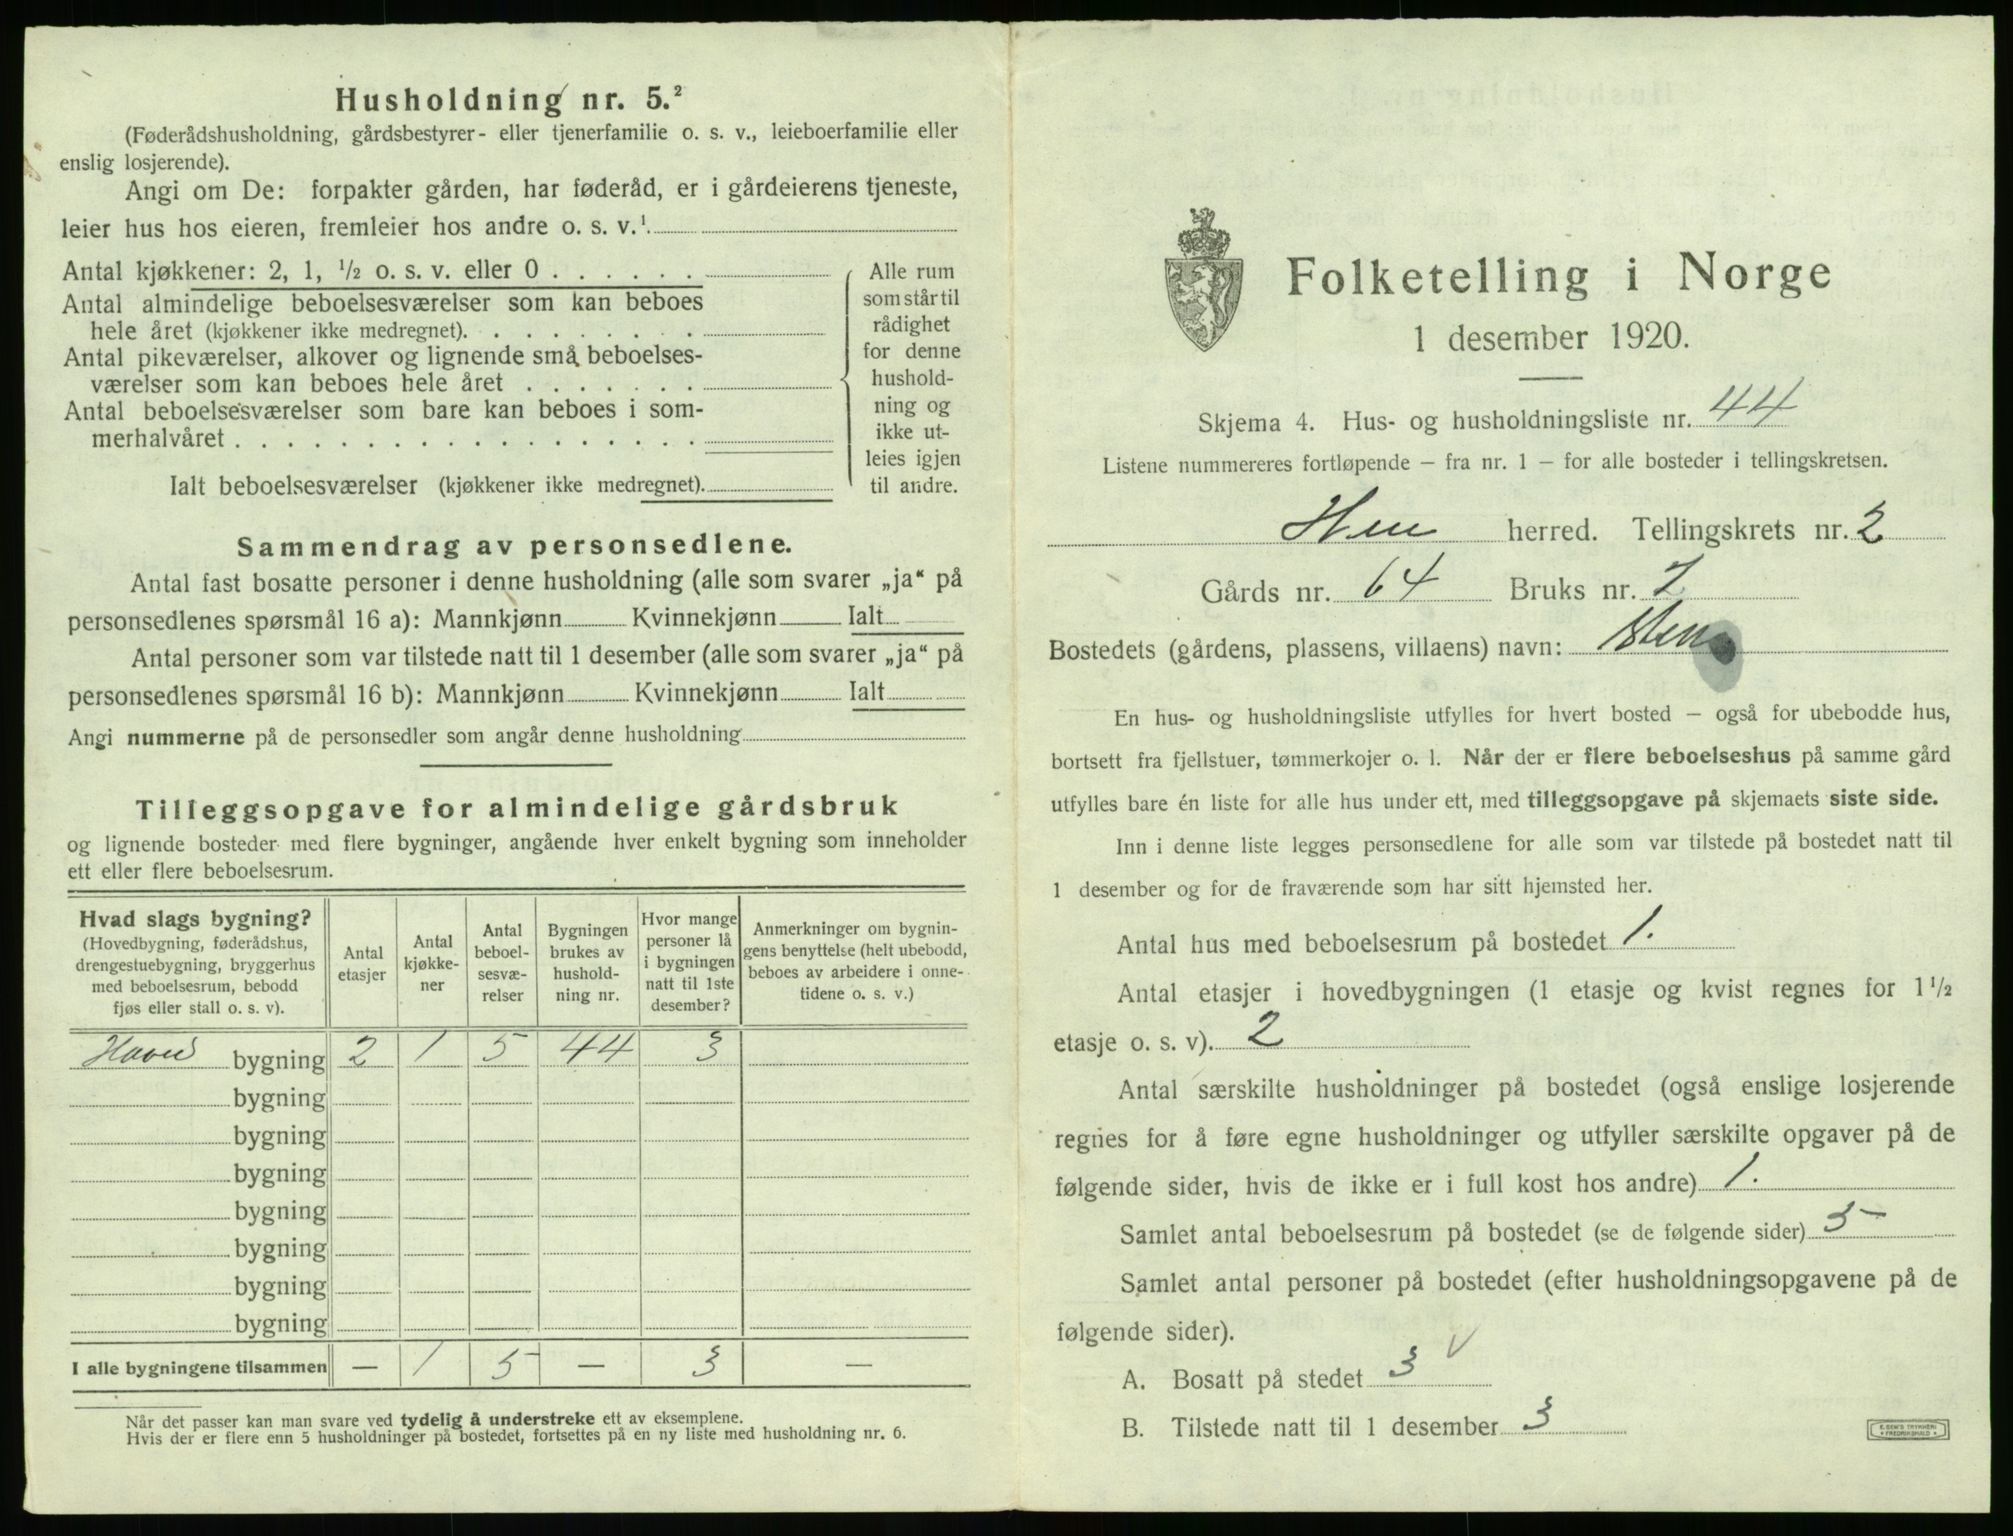 Husholdning nr. 5.²
(Føderådshusholdning, gårdsbestyrer- eller tjenerfamilie o. s. v., leieboerfamilie eller
enslig losjerende).
Angi om De: forpakter gården, har føderåd, er i gårdeierens tjeneste,
leier hus hos eieren, fremleier hos andre o. s. v.¹
Antal kjøkkener: 2, 1, ½ o. s. v. eller 0
Antal almindelige beboelsesværelser som kan beboes
hele året (kjøkkener ikke medregnet).
Antal pikeværelser, alkover og lignende små beboelses-
værelser som kan beboes hele året
Antal beboelsesværelser som bare kan beboes i som-
merhalvåret
Ialt beboelsesværelser (kjøkkener ikke medregnet).
Alle rum
som står til
rådighet
for denne
hushold-
ning og
ikke ut-
leies igjen
til andre.
Sammendrag av personsedlene.
Antal fast bosatte personer i denne husholdning (alle som svarer „ja“ på
personsedlenes spørsmål 16 a): Mannkjønn Kvinnekjønn Ialt
Antal personer som var tilstede natt til 1 desember (alle som svarer „ja“ på
personsedlenes spørsmål 16 b): Mannkjønn Kvinnekjønn Ialt
Angi nummerne på de personsedler som angår denne husholdning
Tilleggsopgave for almindelige gårdsbruk
og lignende bosteder med flere bygninger, angående hver enkelt bygning som inneholder
ett eller flere beboelsesrum.
Hvad slags bygning?
(Hovedbygning, føderådshus,
drengestuebygning, bryggerhus
med beboelsesrum, bebodd
fjøs eller stall o. s. v).
Antal
etasjer
Antal
kjøkke-
ner
Antal
beboel-
sesvæ-
relser
Bygningen
brukes av
hushold-
ning nr.
Hvor mange
personer lå
i bygningen
natt til 1ste
desember?
Anmerkninger om bygnin-
gens benyttelse (helt ubebodd,
beboes av arbeidere i onne-
tidene o. s. v.)
Hoved bygning 2 1 5 44 3
bygning
bygning
bygning
bygning
bygning
bygning
bygning
I alle bygningene tilsammen — 1 5 — 3 —
Når det passer kan man svare ved tydelig å understreke ett av eksemplene.
Hvis der er flere enn 5 husholdninger på bostedet, fortsettes på en ny liste med husholdning nr. 6.
Folketelling i Norge
1 desember 1920.
Skjema 4. Hus- og husholdningsliste nr. 44
Listene nummereres fortløpende – fra nr. 1 – for alle bosteder i tellingskretsen.
Hen herred. Tellingskrets nr. 2
Gårds nr. 64 Bruks nr. 7
Bostedets (gårdens, plassens, villaens) navn:
En hus- og husholdningsliste utfylles for hvert bosted – også for ubebodde hus,
bortsett fra fjellstuer, tømmerkojer o. l. Når der er flere beboelseshus på samme gård
utfylles bare én liste for alle hus under ett, med tilleggsopgave på skjemaets siste side.
Inn i denne liste legges personsedlene for alle som var tilstede på bostedet natt til
1 desember og for de fraværende som har sitt hjemsted her.
Antal hus med beboelsesrum på bostedet 1.
Antal etasjer i hovedbygningen (1 etasje og kvist regnes for 1½
etasje o. s. v). 2
Antal særskilte husholdninger på bostedet (også enslige losjerende
regnes for å føre egne husholdninger og utfyller særskilte opgaver på de
følgende sider, hvis de ikke er i full kost hos andre) 1.
Samlet antal beboelsesrum på bostedet (se de følgende sider) 5
Samlet antal personer på bostedet (efter husholdningsopgavene på de
følgende sider).
A. Bosatt på stedet 3 V
B. Tilstede natt til 1 desember 3